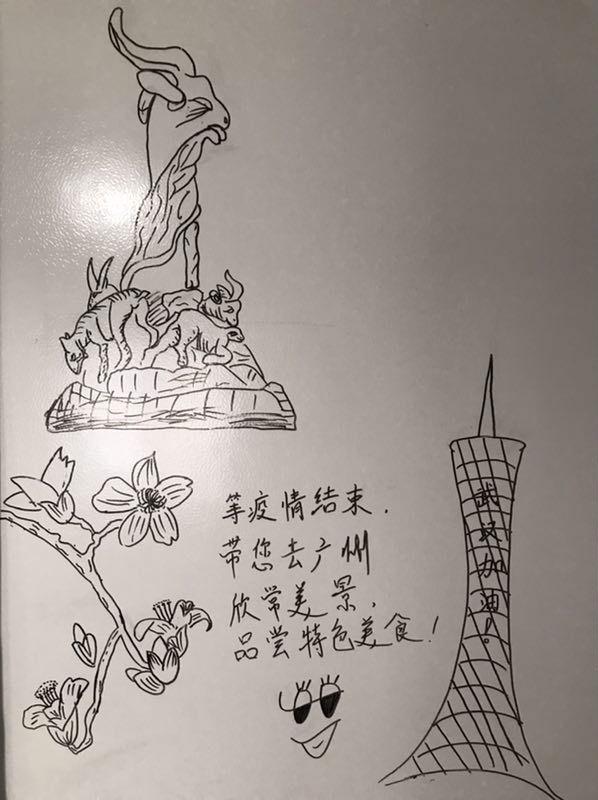 等疫情结束,
带您去广州
欣常美景,
品尝特色美食!
武汉加油!